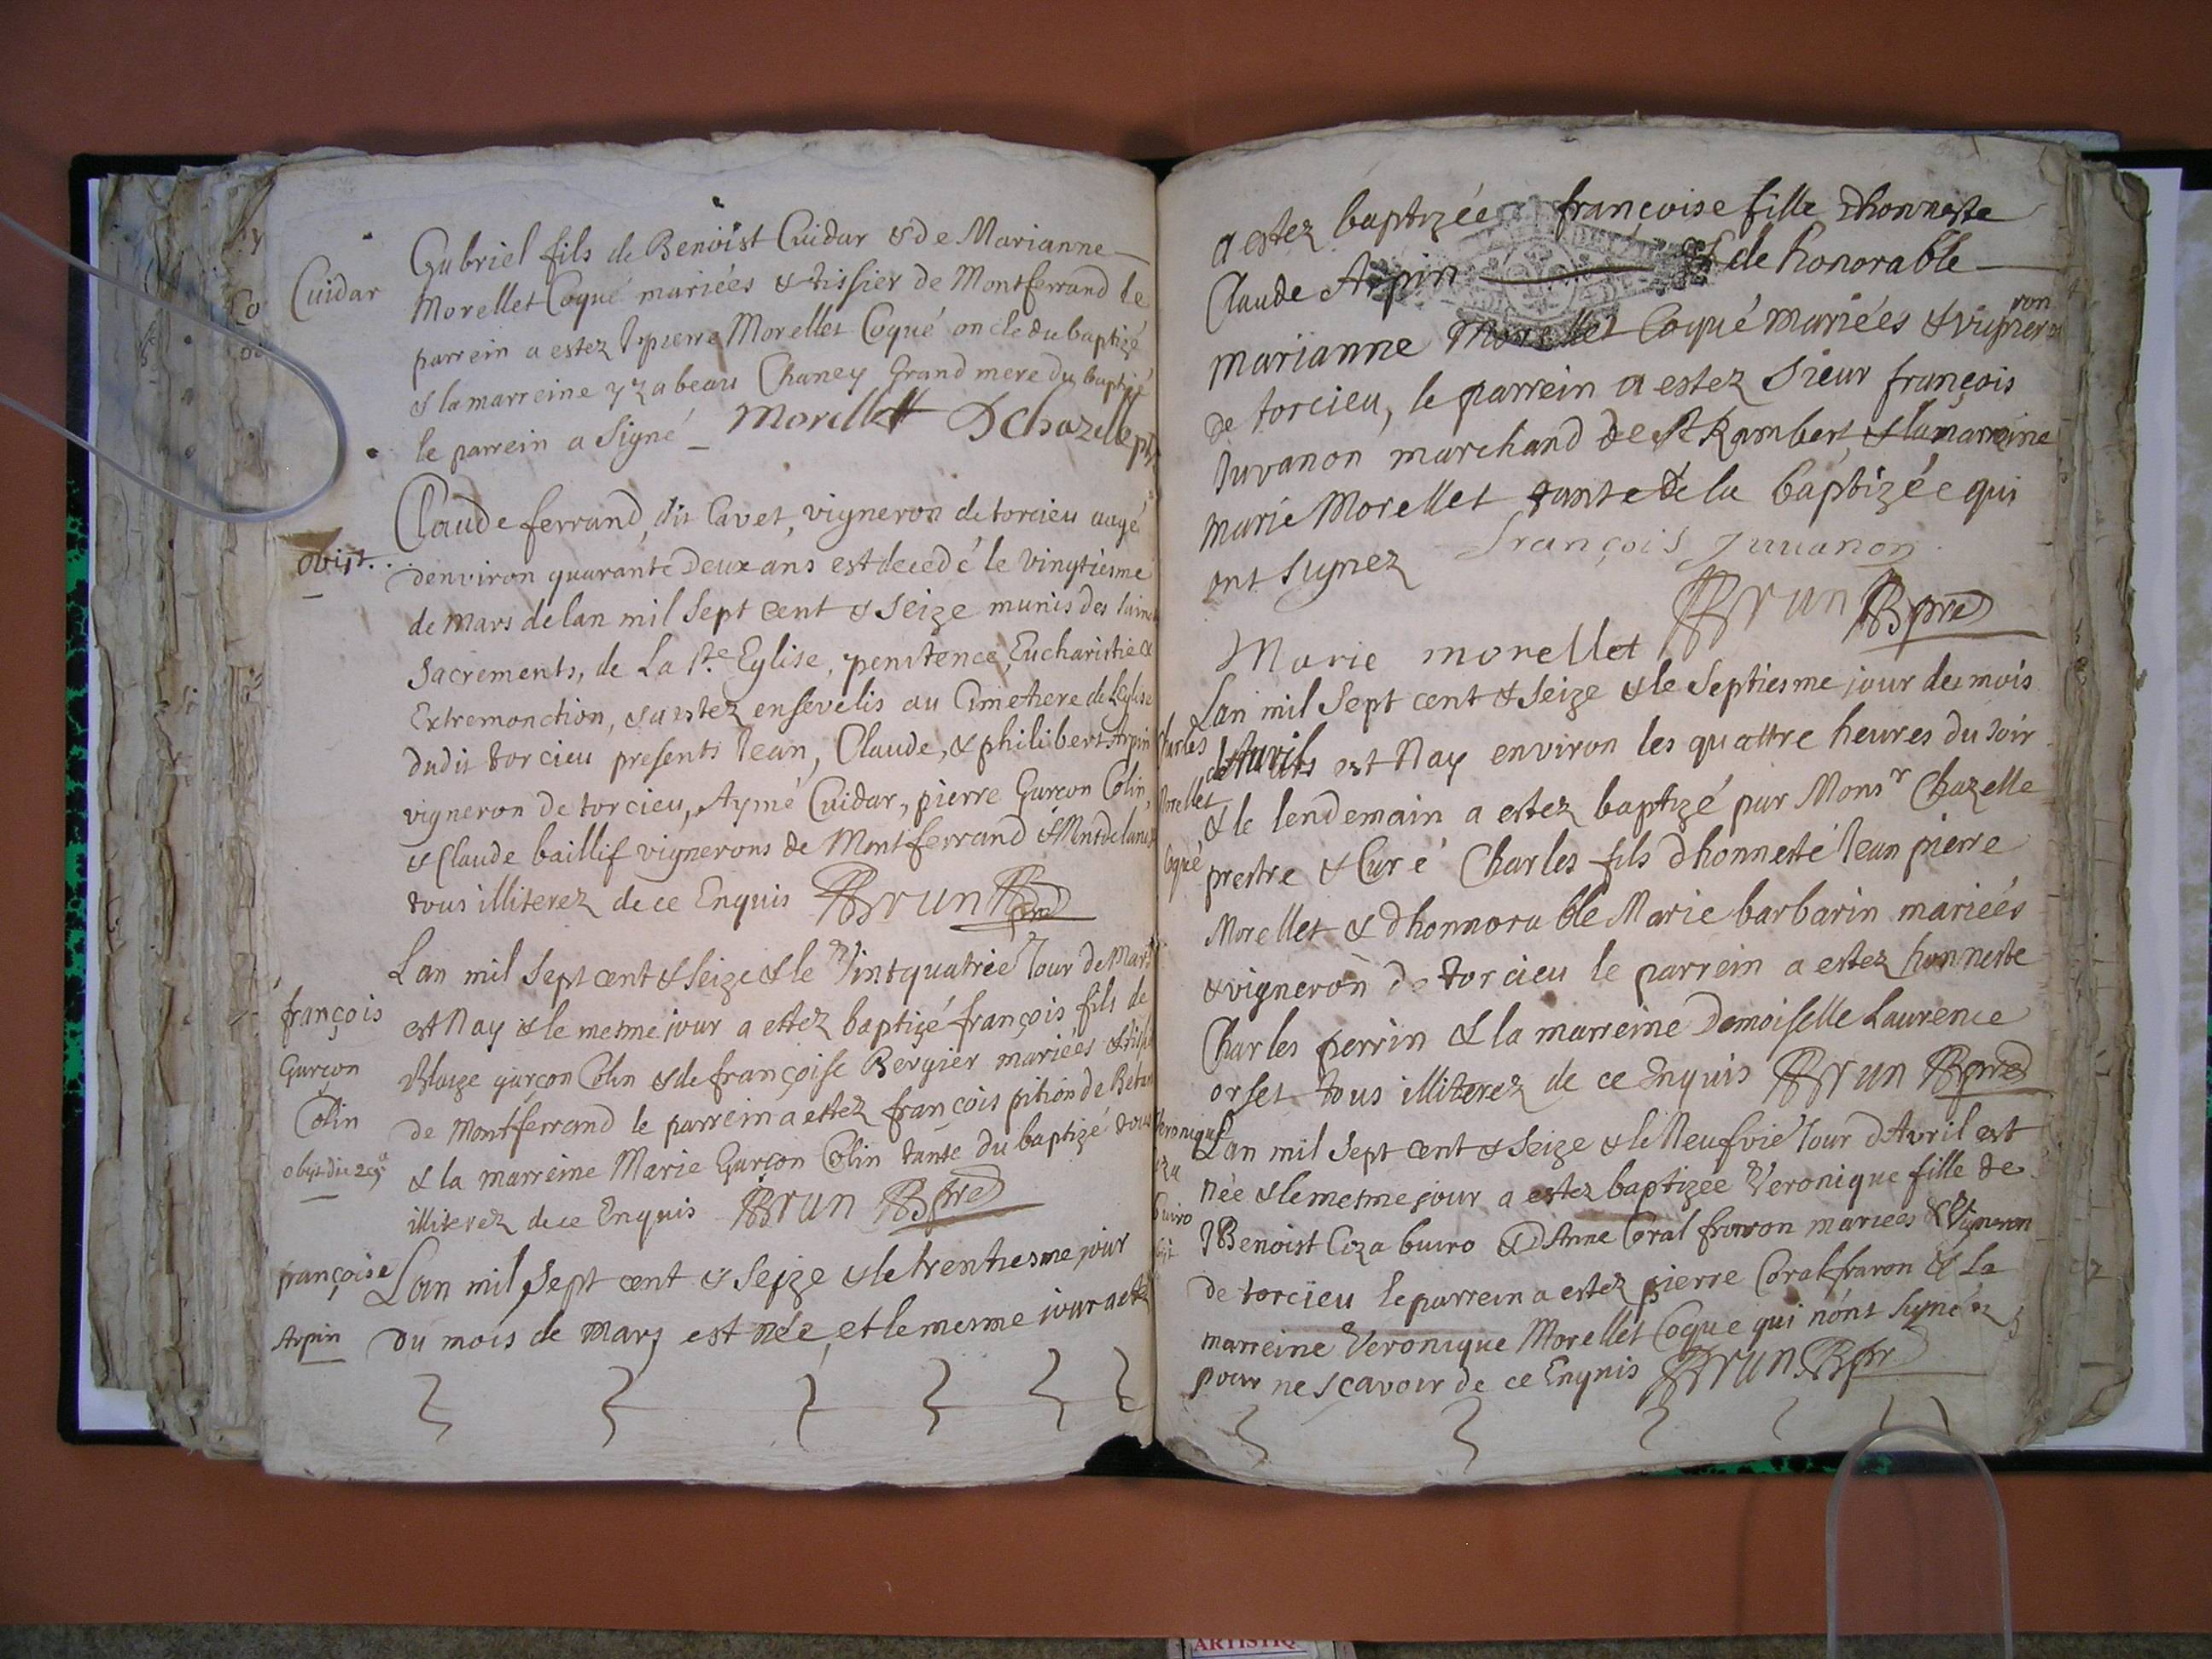 Gabriel fils de Benoist Cuidar & de Marianne
Cuidar
Morellet Coqué mariées & tissier de Montferrand le
parrein a estez Jpierre Morellet Coqué oncle du baptizé
& la marreine yzabeau Chaney Grand mere du baptizé
le parrein a Signé _ Morellet DChazelle ptr
Claude ferrand, dit Cavet, vigneron de torcieu aagé
obijt
denviron quarante Deux ans est decedé le vingtiesme
de Mars de lan mil Sept cent & Seize munis des
Sacrements, de La Ste Eglise, penitence, Eucharistie &
Extremonction, & a estez ensevelis au Cimetiere de Leglise
dudit torcieu presents Jean, Claude, & philibert Arpin
vigneron de torcieu, Aymé Cuidar, pierre Garçon Colin,
& Claude baillif vignerons de Montferrand &
tous illiterez de ce Enquis BBrun pre
Lan mil Sept cent & Seize & le Vintquatrie Jour de Mars
françois
Garçon
Colin
est Nay & le mesme jour a estez baptizé françois fils de
Blaize garçon Colin & de françoise Bergier mariées &
de Montferrand le parrein a estez françois pition de
& la marreine Marie Garçon Colin tante du baptizé tous
illiterez de ce Enquis BBrun pre
françoise
Arpin
Lan mil Sept cent & Seize & le trentiesme jour
du mois de Mars est née, et le mesme jour a estez
a estez baptizée françoise fille dhonneste
Claude Arpin & de honorable
marianne Morellet Coqué Mariées & vigneron
de torcieu, le parrein a estez Sieur françois
Juvanon marchand de St Rambert, & la marreine
Marie Morellet tante de la baptizée qui
ont Signez françois Juuanon
BBrun pre
Marie morellet
Lan mil Sept cent & Seize & le Septiesme jour du mois
Charles
Morellet
Coqué
dAvril est Nay environ les quattre heures du Soir
& le lendemain a estez baptizé par Monsr Chazelle
prestre & Curé Charles fils dhonneste Jean pierre
Morellet & dhonnorable Marie barbarin mariées
& vigneron de torcieu le parrein a estez honneste
Charles perrin & la marreine Demoiselle Laurence
orset tous illiterez de ce Enquis BBrun pre
Veronique
Lan mil Sept cent & Seize & le Neufvie Jour dAvril est
née & le mesme jour a estez baptizee Veronique fille de
Benoist Coza buiro & dAnne Coral mariees & Vigneron
de torcieu le parrein a estez pierre Coral & La
marreine Veronique Morellet Coque qui nont Signéez
pour ne Scavoir de ce Enquis BBrun pr
ARTISTIQ